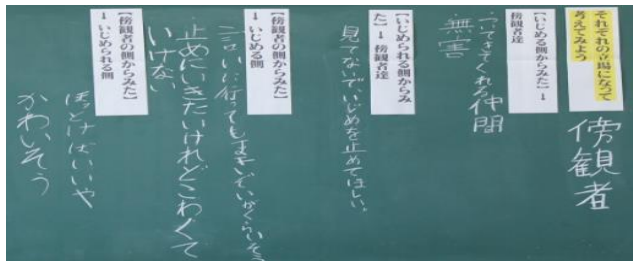 それぞれの立場になって
考えてみよう
傍観者
【いじめる側からみた】→
傍観者達
ついてきてくれる仲間
無害
【いじめられる側からみ
た】→ 傍観者達
見てないで、いじめを止めてほしい。
【傍観者の側からみた】
→ いじめる側
言いに行っても
止めにいきたいけれどこわくて
いけない
【傍観者の側からみた】
→ いじめられる側
ほっとけばいいや
かわいそう